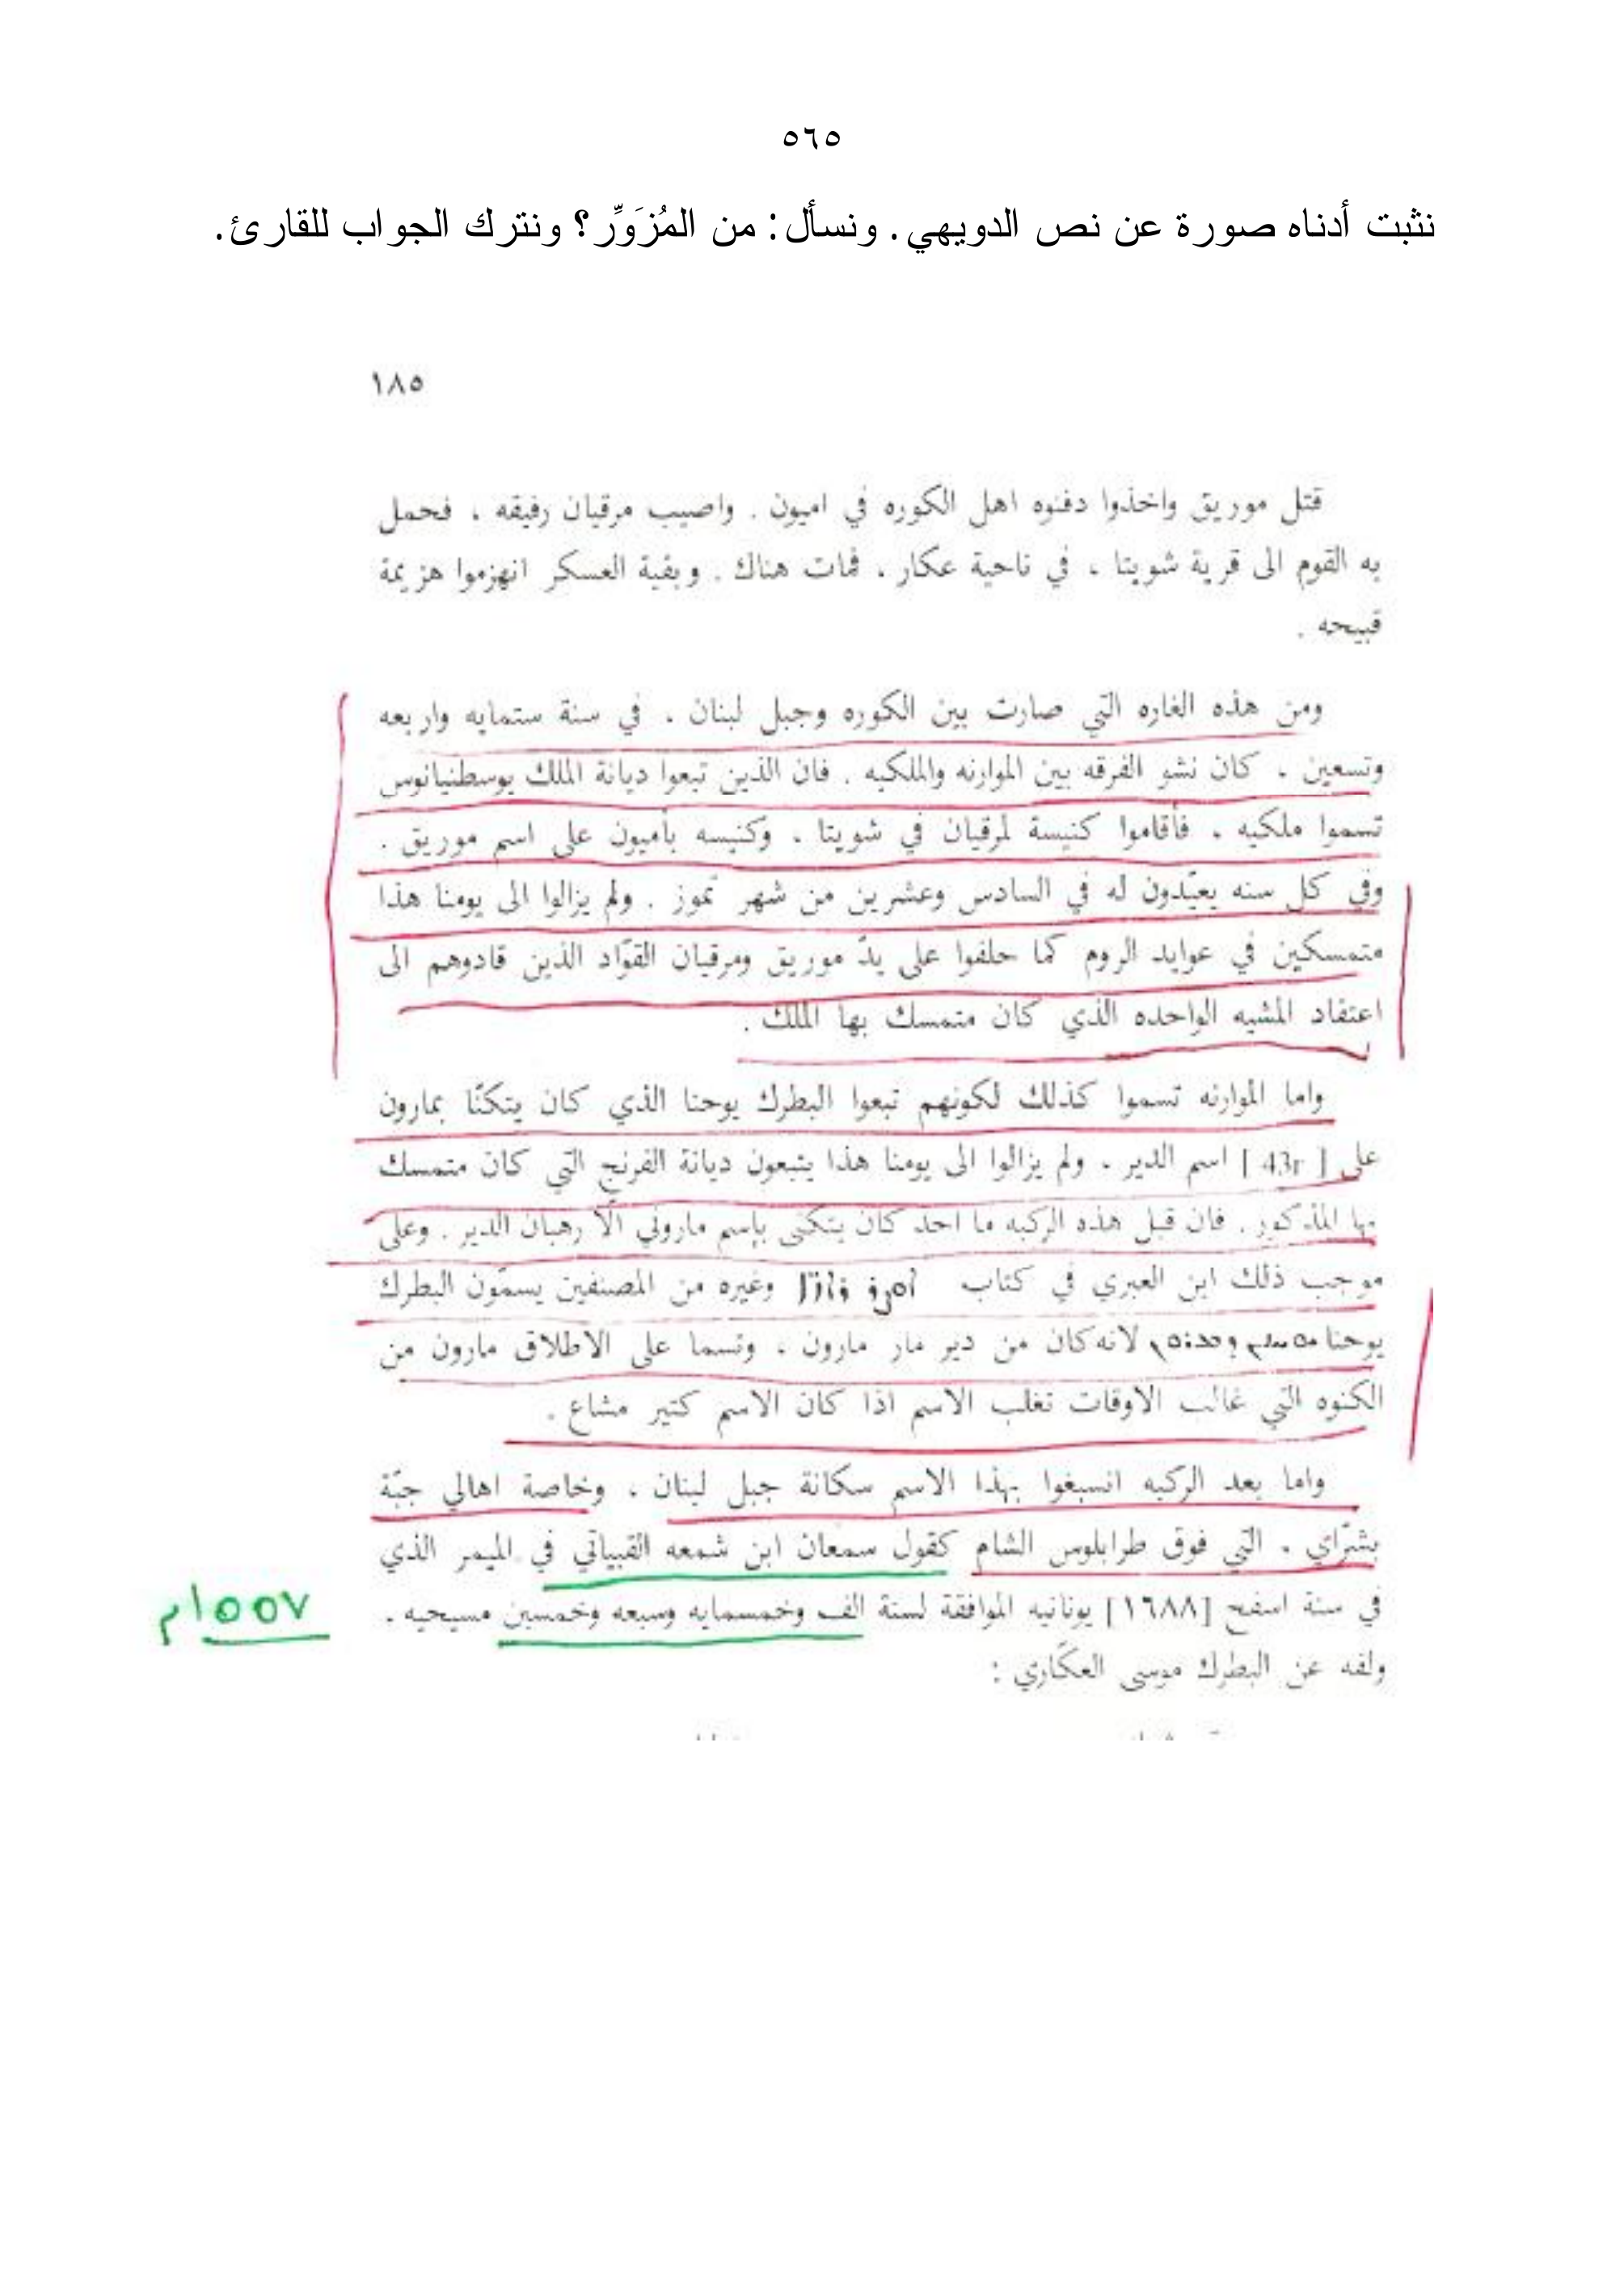 ٥٦٥
نثبت أدناه صورة عن نص الدويهي. ونسأل: من المُزَوِّر؟ ونترك الجواب للقارئ.
١٨٥
قتل موريق واخذوا دفنوه اهل الكوره في اميون . واصيب مرقيان رفيقه ، فحمل
به القوم الى قرية شويتا ، في ناحية عكار ، فمات هناك . وبقية العسكر انهزموا هزيمة
قبيحه .
ومن هذه الغاره التي صارت بين الكوره وجبل لبنان ، في سنة ستمايه واربعه
وتسعين ، كان نشو الفرقه بين الموارنه والملكيه . فان الذين تبعوا ديانة الملك يوسطنيانوس
تسموا ملكيه ، فأقاموا كنيسة لمرقيان في شويتا ، وكنيسه بأميون على اسم موريق .
وفي كل سنه يعيّدون له في السادس وعشرين من شهر تموز . ولم يزالوا الى يومنا هذا
متمسكين في عوايد الروم كما حلفوا على يدّ موريق ومرقيان القوّاد الذين قادوهم الى
اعتقاد المشيه الواحده الذي كان متمسك بها الملك .
واما الموارنه تسموا كذلك لكونهم تبعوا البطرك يوحنا الذي كان يتكنّا بمارون
على [ 43r ] اسم الدير ، ولم يزالوا الى يومنا هذا يتبعون ديانة الفرنج التي كان متمسك
بها المذكور . فان قبل هذه الركبه ما احد كان يتكنى بإسم ماروني الّا رهبان الدير . وعلى
موجب ذلك ابن العبري في كتاب وغيره من المصنفين يسمّون البطرك
يوحنا لانه كان من دير مار مارون ، وتسما على الاطلاق مارون من
الكنوه التي غالب الاوقات تغلب الاسم اذا كان الاسم كتير مشاع .
واما بعد الركبه انسبغوا بهذا الاسم سكانة جبل لبنان ، وخاصة اهالي جبّة
بشرّاي ، التي فوق طرابلوس الشام كقول سمعان ابن شمعه القبياتي في الميمر الذي
في سنة اسفح [١٦٨٨] يونانيه الموافقة لسنة الف وخمسمايه وسبعه وخمسين مسيحيه .
١٥٥٧م
ولفه عن البطرك موسى العكّاري :